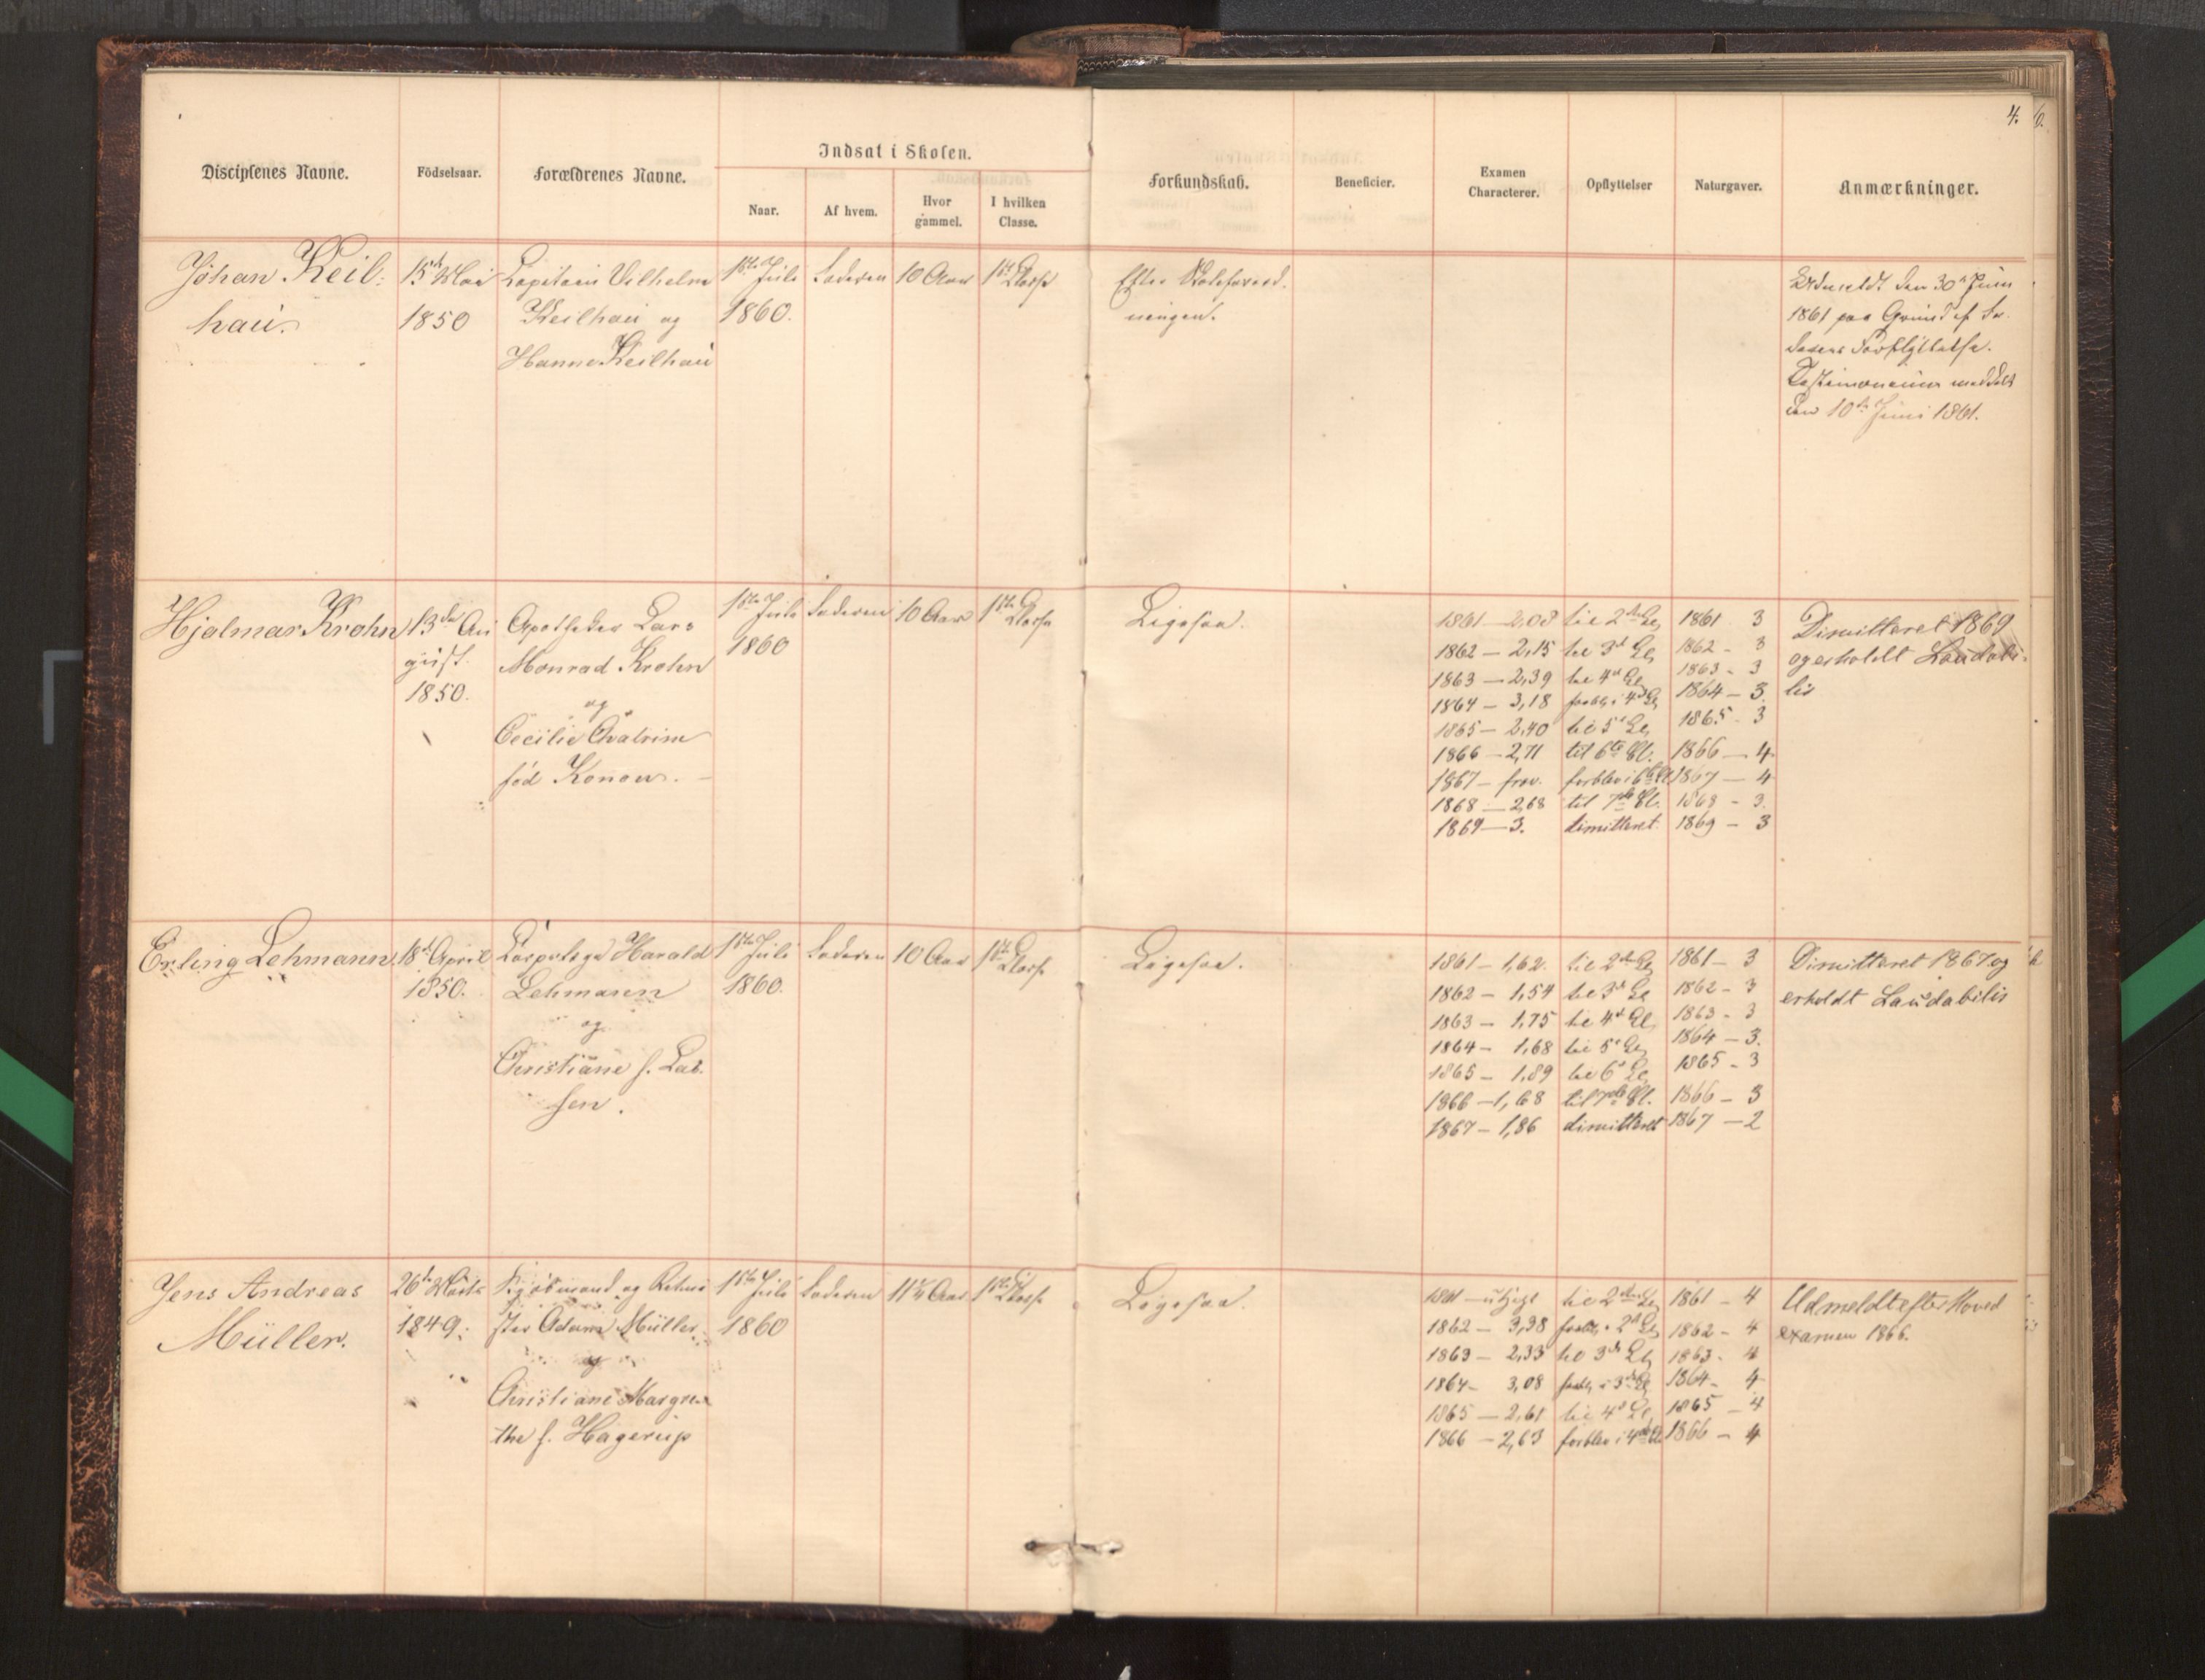 4. 6.
Disciplenes Navne. Födselsaar. Forældrenes Navne. Indsat i Skolen. Forkundskab. Beneficier. Examen Characterer. Opflyttelser Naturgaver. Anmærkninger.
Naar. Af hvem. Hvor gammel. I hvilken Classe.
Johan Keil-
hau.
15de Mai
1850
Capitain Vilhelm
Keilhau og
Hanne Keilhau
1ste Juli
1860.
Faderen
10 Aar
1ste Classe
Efter Skoleforord-
ningen.
Udmeldt den 30te Juni
1861 paa Grund af Fa-
derens Forflyttelse.
Testimonium meddelt
den 10de Juni 1861.
Hjalmar Krohn
13de Au
gust.
1850.
Apotheker Lars
Monrad Krohn
og
Cecilie Chatrine
fød Konow.
1ste Juli
1860
Faderen
10 Aar
1ste Classe
Ligesaa.
1861 — 2,08 til 2den Cl. 1861 3
1862 — 2,15 til 3d Cl. 1862 - 3
1863 — 2,39 til 4d Cl. 1863 - 3
1864 — 3,18 forbl. i 4d Cl. 1864 — 3.
1865 — 2,40 til 5t Cl. 1865 - 3
1866 — 2,71 til 6te Cl. 1866 — 4
1867 — frav. forblev i 6te Cl. 1867 — 4
1868 — 2,68 til 7de Cl. 1868 - 3.
1869 — 3. dimitteret. 1869 - 3
Dimitteret 1869
og erholdt Laudabi-
lis
Erling Lehmann
18d April
1850.
Corpslæge Harald
Lehmann
og
Christiane f. Lar-
sen.
1ste Juli
1860.
Faderen
10 Aar
1ste Classe
Ligesaa.
1861 — 1,62. til 2den Cl. 1861 — 3
1862 — 1,54 til 3d Cl. 1862 - 3
1863 — 1,75 til 4d Cl. 1863 - 3
1864 — 1,68 til 5t Cl. 1864 — 3.
1865 — 1,89 til 6t Cl. 1865 - 3
1866 — 1,68 til 7de Cl. 1866 — 3
1867 — 1,86 dimitteret 1867 — 2
Dimitteret 1867 og
erholdt Laudabilis
Jens Andreas
Müller.
26de Marts
1849.
Kjøbmand og
Adam Müller
og
Christiane Margre-
the f. Hagerup
1ste Juli
1860
Faderen
11¼ Aar
1ste Classe
Ligesaa.
1861 — til 2den Cl. 1861 — 4
1862 — 3,38 forbl. i 2d Cl. 1862 - 4
1863 — 2,33 til 3de Cl. 1863 - 4
1864 - 3,08 forbl. i 3de Cl. 1864 - 4
1865 — 2,61 til 4d Cl. 1865 - 4
1866 — 2,63 forblev i 4de Cl 1866 - 4
Udmeldt efter Hoved
examen 1866.